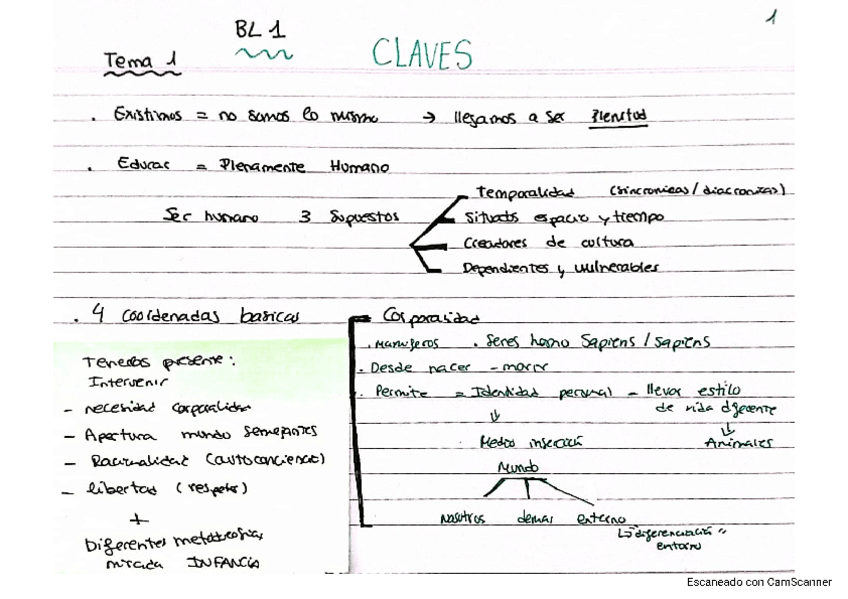 1
BL 1
Tema 1
CLAVES
. Existimos = no somos lo mismo → llegamos a ser Plenitud
. Educar = Plenamente Humano
Ser humano 3 Supuestos
Temporalidad (sincronicas / diacronicas)
Situado espacio y tiempo
Creadores de cultura
Dependientes y vulnerables
. 4 coordenadas basicas
Tenemos presente:
Intervenir
- necesidad corporalidad
- Apertura mundo semejantes
- Racionalidad (autoconciencia)
- libertad (respeto)
+
Diferentes
mirada INFANCIA
Corporalidad
. Mamiferos . Seres homo Sapiens / sapiens
. Desde nacer - morir
. Permite = Identidad personal - llevar estilo
de vida diferente
↓ ↓
Medio inserción Animales
Mundo
nosotros demas entorno
↳ diferenciación
entorno
Escaneado con CamScanner